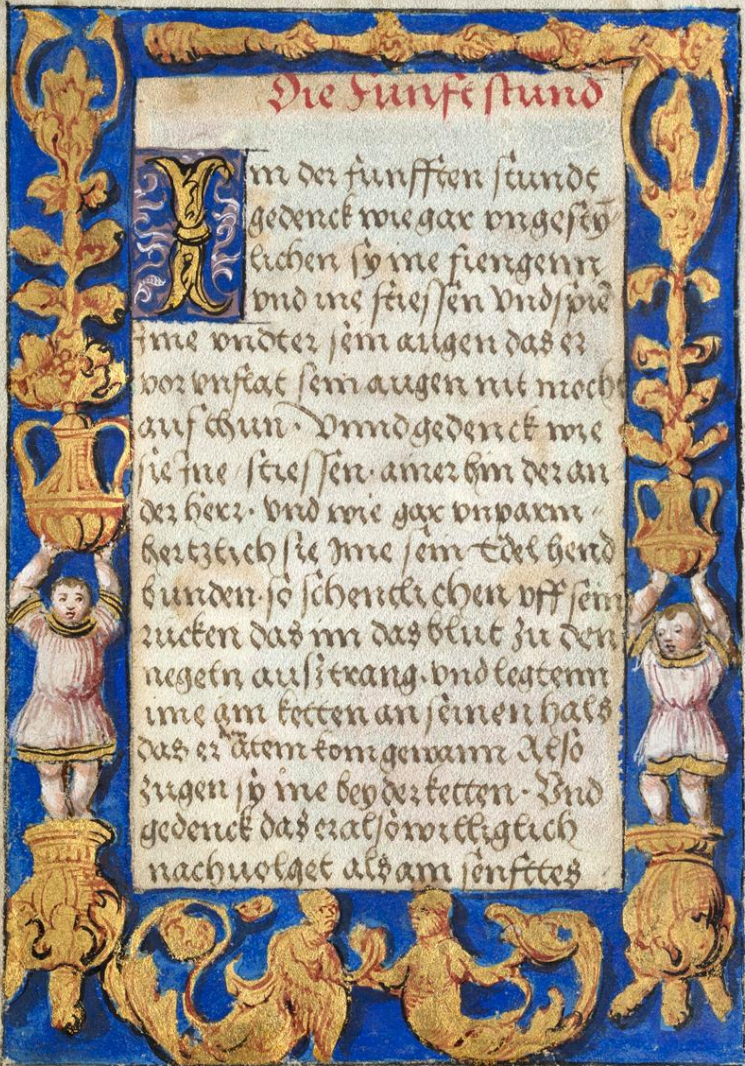 Die Funfft stund
In der funfften stundt
gedenck wie gar vngestŷ
lichen sy ine fiengenn
vnd ine stiessen vnd spiē
ime vndter sein augen das er
vor vnflat sein augen nit moch
auf thun · Vnnd gedenck wie
sie Ine stiessen · ainer hin der an
der herr · vnd wie gar vnparm
hertzlich sie Ime sein Edel hend
bunden · so schentlichen vff sein
rucken das im das blut zu den
negeln ausz trang · vnd legtenn
ime ain ketten an seinen hals
das er Atem kom gewann Also
zugen sy ine bey der ketten · Vnd
gedenck das er also williglich
nachuolget als am senfttes